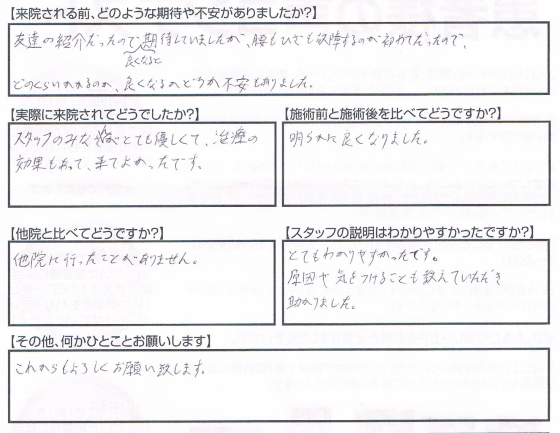 【来院される前、どのような期待や不安がありましたか?】
友達の紹介だったので良くなると期待していましたが、腰もひざも故障するのが初めてだったので、
どのくらいかかるのか、良くなるのかどうか不安もありました。
【実際に来院されてどうでしたか?】
スタッフのみなさんとても優しくて、治療の
効果もあって、来てよかったです。
【施術前と施術後を比べてどうですか?】
明らかに良くなりました。
【他院と比べてどうですか?】
他院に行ったことがありません。
【スタッフの説明はわかりやすかったですか?】
とてもわかりやすかったです。
原因や気をつけることも教えていただき
助かりました。
【その他、何かひとことお願いします】
これからもよろしくお願い致します。